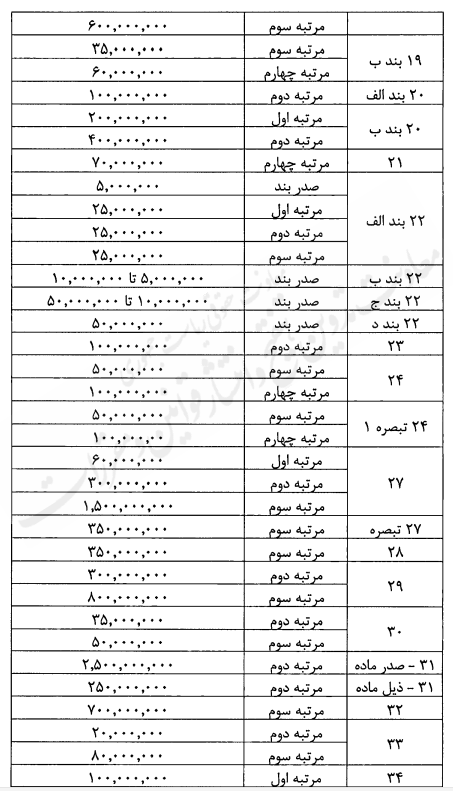 مرتبه سوم ۶۰۰,۰۰۰,۰۰۰
۱۹ بند ب مرتبه سوم ۳۵,۰۰۰,۰۰۰
مرتبه چهارم ۶۰,۰۰۰,۰۰۰
۲۰ بند الف مرتبه دوم ۱۰۰,۰۰۰,۰۰۰
۲۰ بند ب مرتبه اول ۲۰۰,۰۰۰,۰۰۰
مرتبه دوم ۴۰۰,۰۰۰,۰۰۰
۲۱ مرتبه چهارم ۷۰,۰۰۰,۰۰۰
۲۲ بند الف صدر بند ۵,۰۰۰,۰۰۰
مرتبه اول ۲۵,۰۰۰,۰۰۰
مرتبه دوم ۲۵,۰۰۰,۰۰۰
مرتبه سوم ۲۵,۰۰۰,۰۰۰
۲۲ بند ب صدر بند ۵,۰۰۰,۰۰۰ تا ۱۰,۰۰۰,۰۰۰
۲۲ بند ج صدر بند ۱۰,۰۰۰,۰۰۰ تا ۵۰,۰۰۰,۰۰۰
۲۲ بند د صدر بند ۵۰,۰۰۰,۰۰۰
۲۳ مرتبه دوم ۱۰۰,۰۰۰,۰۰۰
۲۴ مرتبه سوم ۵۰,۰۰۰,۰۰۰
مرتبه چهارم ۱۰۰,۰۰۰,۰۰۰
۲۴ تبصره ۱ مرتبه سوم ۵۰,۰۰۰,۰۰۰
مرتبه چهارم ۱۰۰,۰۰۰,۰۰
۲۷ مرتبه اول ۶۰,۰۰۰,۰۰۰
مرتبه دوم ۳۰۰,۰۰۰,۰۰۰
مرتبه سوم ۱,۵۰۰,۰۰۰,۰۰۰
۲۷ تبصره مرتبه سوم ۳۵۰,۰۰۰,۰۰۰
۲۸ مرتبه سوم ۳۵۰,۰۰۰,۰۰۰
۲۹ مرتبه دوم ۳۰۰,۰۰۰,۰۰۰
مرتبه سوم ۸۰۰,۰۰۰,۰۰۰
۳۰ مرتبه دوم ۳۵,۰۰۰,۰۰۰
مرتبه سوم ۵۰,۰۰۰,۰۰۰
۳۱ - صدر ماده مرتبه دوم ۲,۵۰۰,۰۰۰,۰۰۰
۳۱ - ذیل ماده مرتبه دوم ۲۵۰,۰۰۰,۰۰۰
۳۲ مرتبه سوم ۷۰۰,۰۰۰,۰۰۰
۳۳ مرتبه دوم ۲۰,۰۰۰,۰۰۰
مرتبه سوم ۸۰,۰۰۰,۰۰۰
۳۴ مرتبه اول ۱۰۰,۰۰۰,۰۰۰